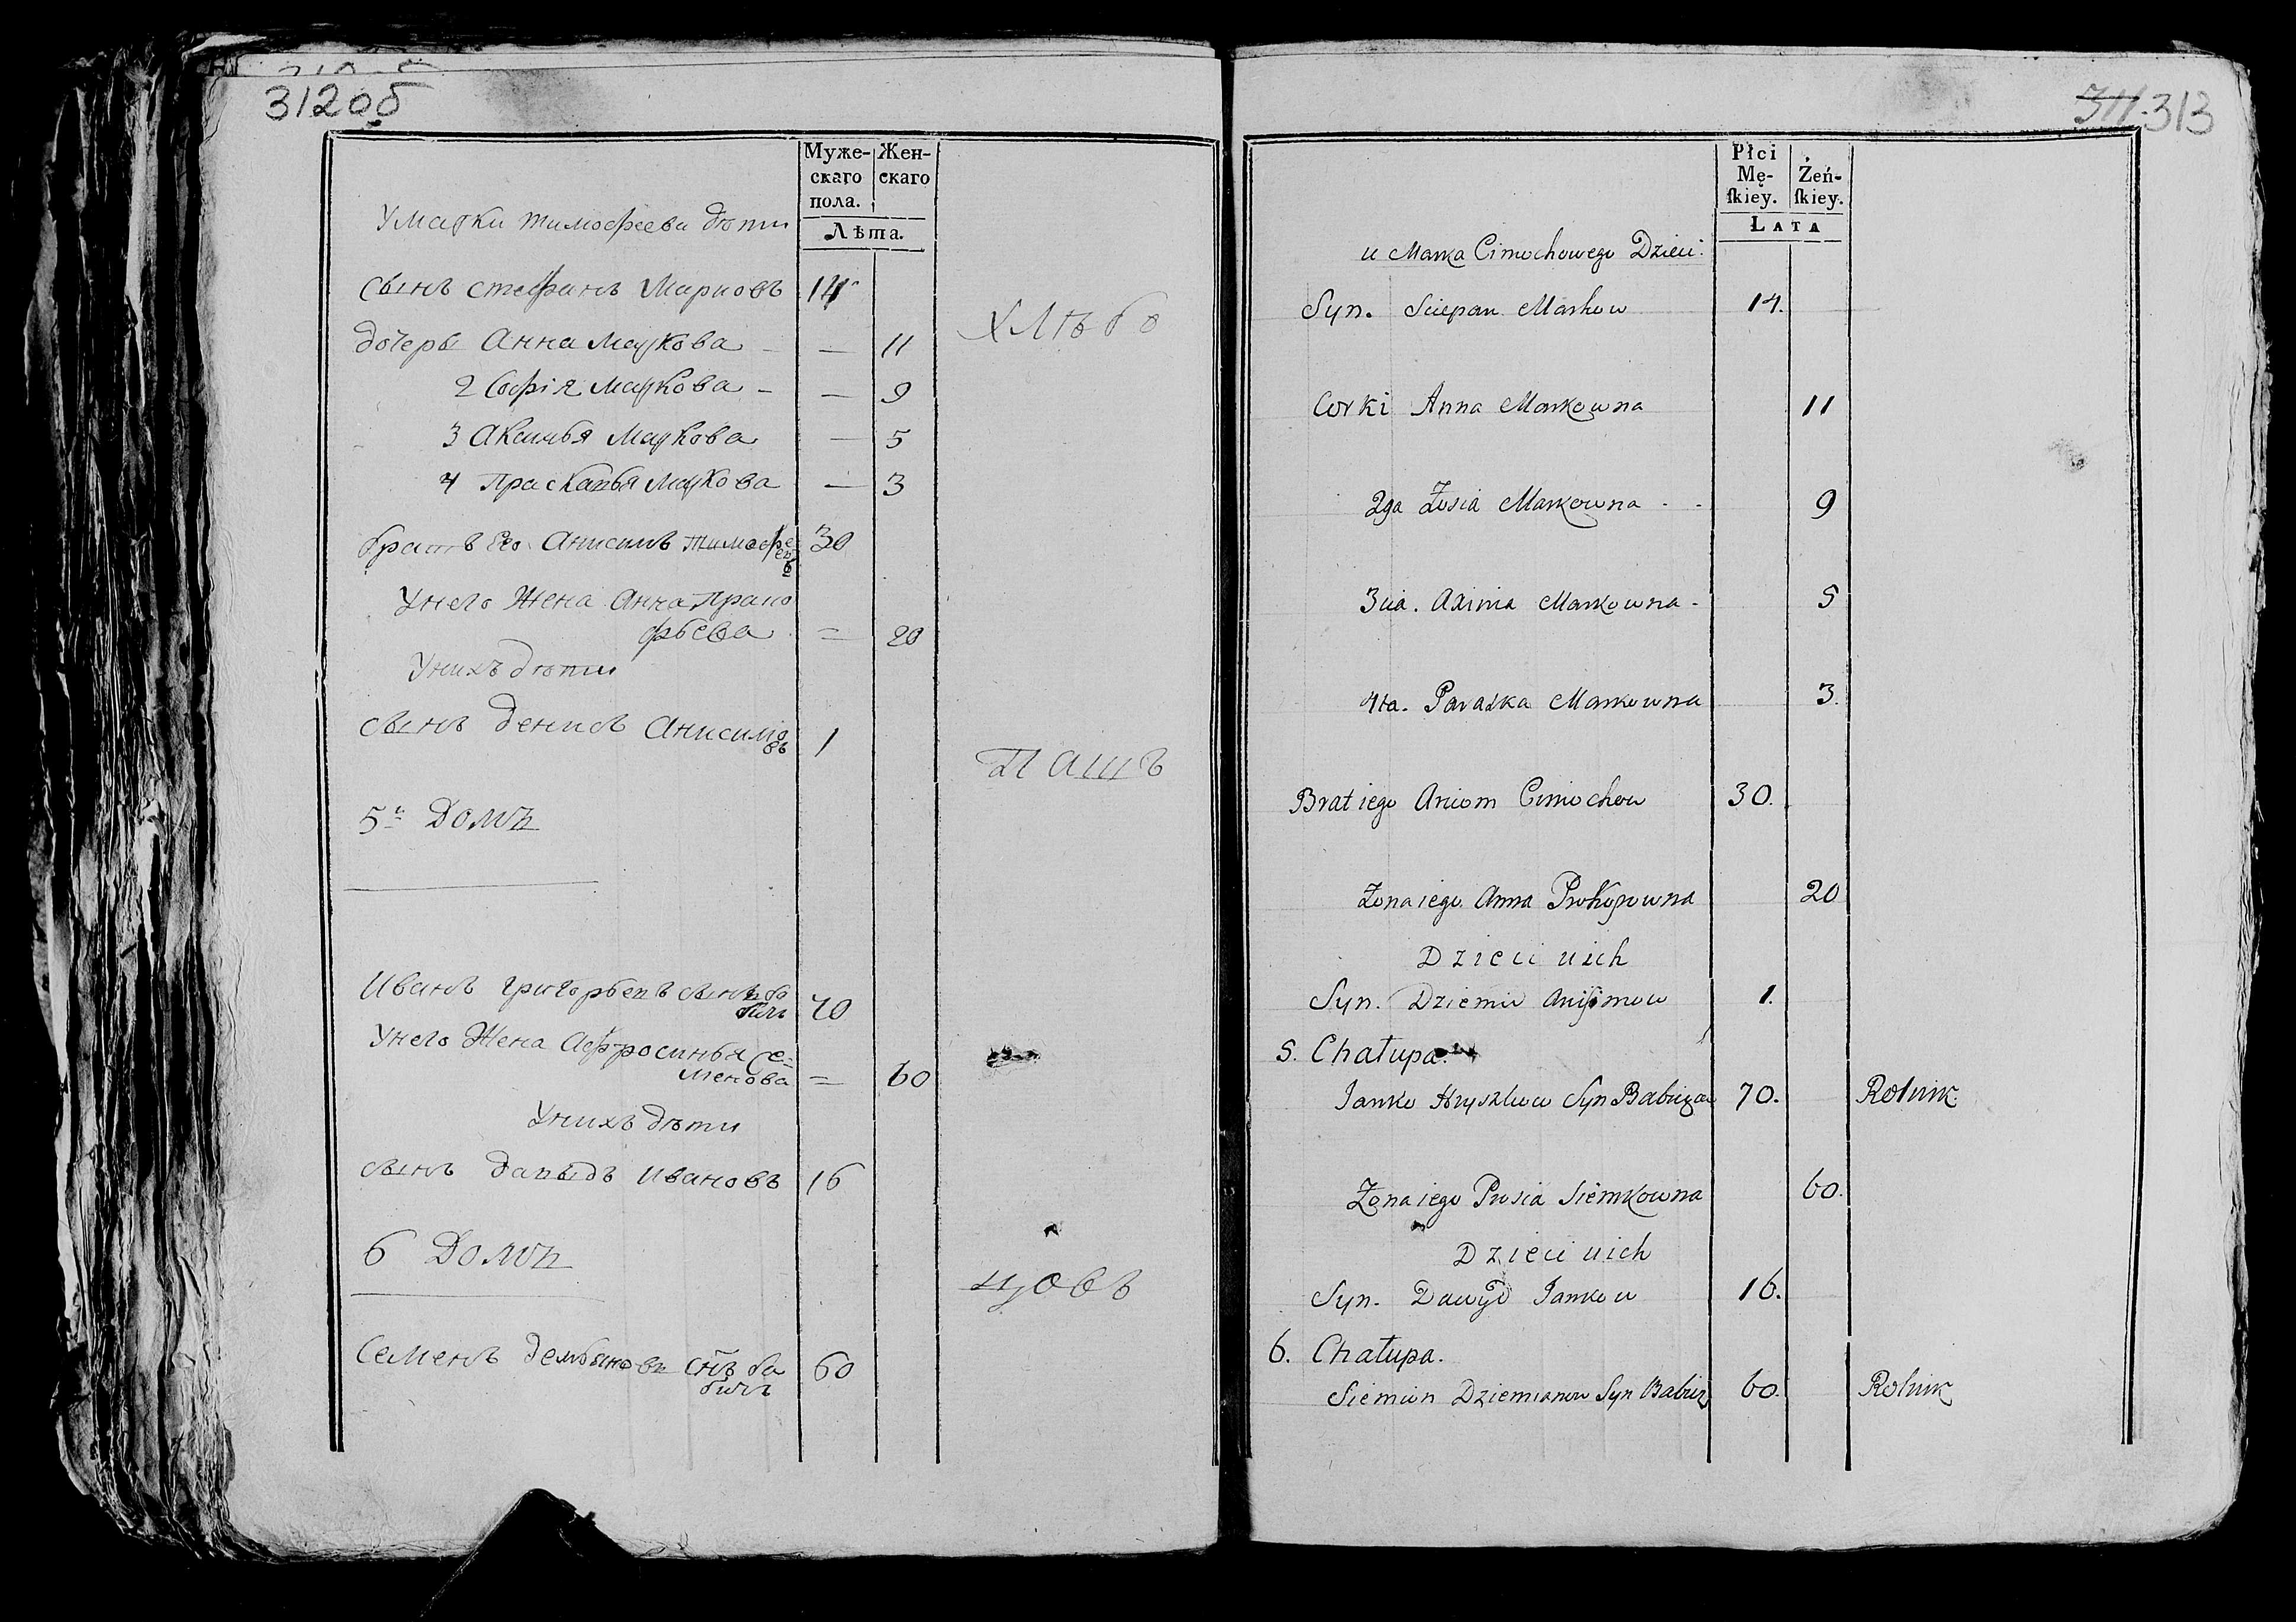 312об
Муже-
скаго
пола.
Жен-
скаго
Лѣта.
У марки тимофееви дѣти
сынъ стефанъ Марковъ 14
дочеры Анна маркова — — 11
2 Софія маркова — — 9
3 Аксинья маркова — 5
4 Праскавья маркова — 3
братъ Его Анисимъ тимофе
евъ 30
Унего Жена Анна Прако
фьева = 20
Унихъ дѣти
сынъ Денисъ Анисимо
въ 1
5й Домъ
Иванъ григорьевъ сынъ ба
бичъ 70
Унего Жена Афросинья Се-
менова = 60
Унихъ дѣти
сынъ давыдъ Ивановъ 16
6 Домъ
Семенъ демьяновъ снъ ба
бичъ 60
хлѣбо
пашъ
цовъ
311. 313
Płci
Mę-
ſkiey.
Żeń-
ſkiey.
Lata
u Marka Cimochowego Dzieci.
Syn. Sciepan Markow 14.
Corki Anna Markowna 11
2ga Zosia Markowna - - 9
3cia. Axinia Markowna - 5
4ta. Paraska Markowna 3.
Brat iego Aniom Cimochow 30.
Żona iego Anna Prokopowna 20
Dzieci uich
Syn. Dziemid Anisimow 1.
5. Chałupa.
Janko Hryszkow Syn Babicza 70. Rolnik.
Żona iego Prosia Siemkowna 60.
Dzieci uich
Syn. Dawyd Jankow 16.
6. Chałupa.
Siemion Dziemianow Syn Babicz 60. Rolnik